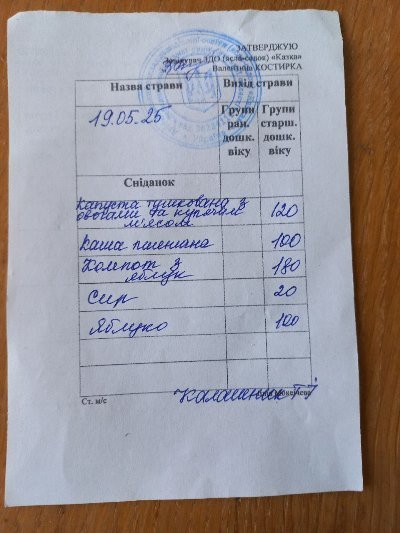 ЗАТВЕРДЖУЮ
Завідувач ЗДО (ясла-садок) «Казка»
Валентина КОСТИРКА
Назва страви
Вихід страви
19.05.25
Групи ран. дошк. віку
Групи старш. дошк. віку
Сніданок
Капуста тушкована з
овочами та курячим
м'ясом 120
Каша пшенична 100
Компот з
яблук 180
Сир 20
Яблуко 100
Ст. м/с